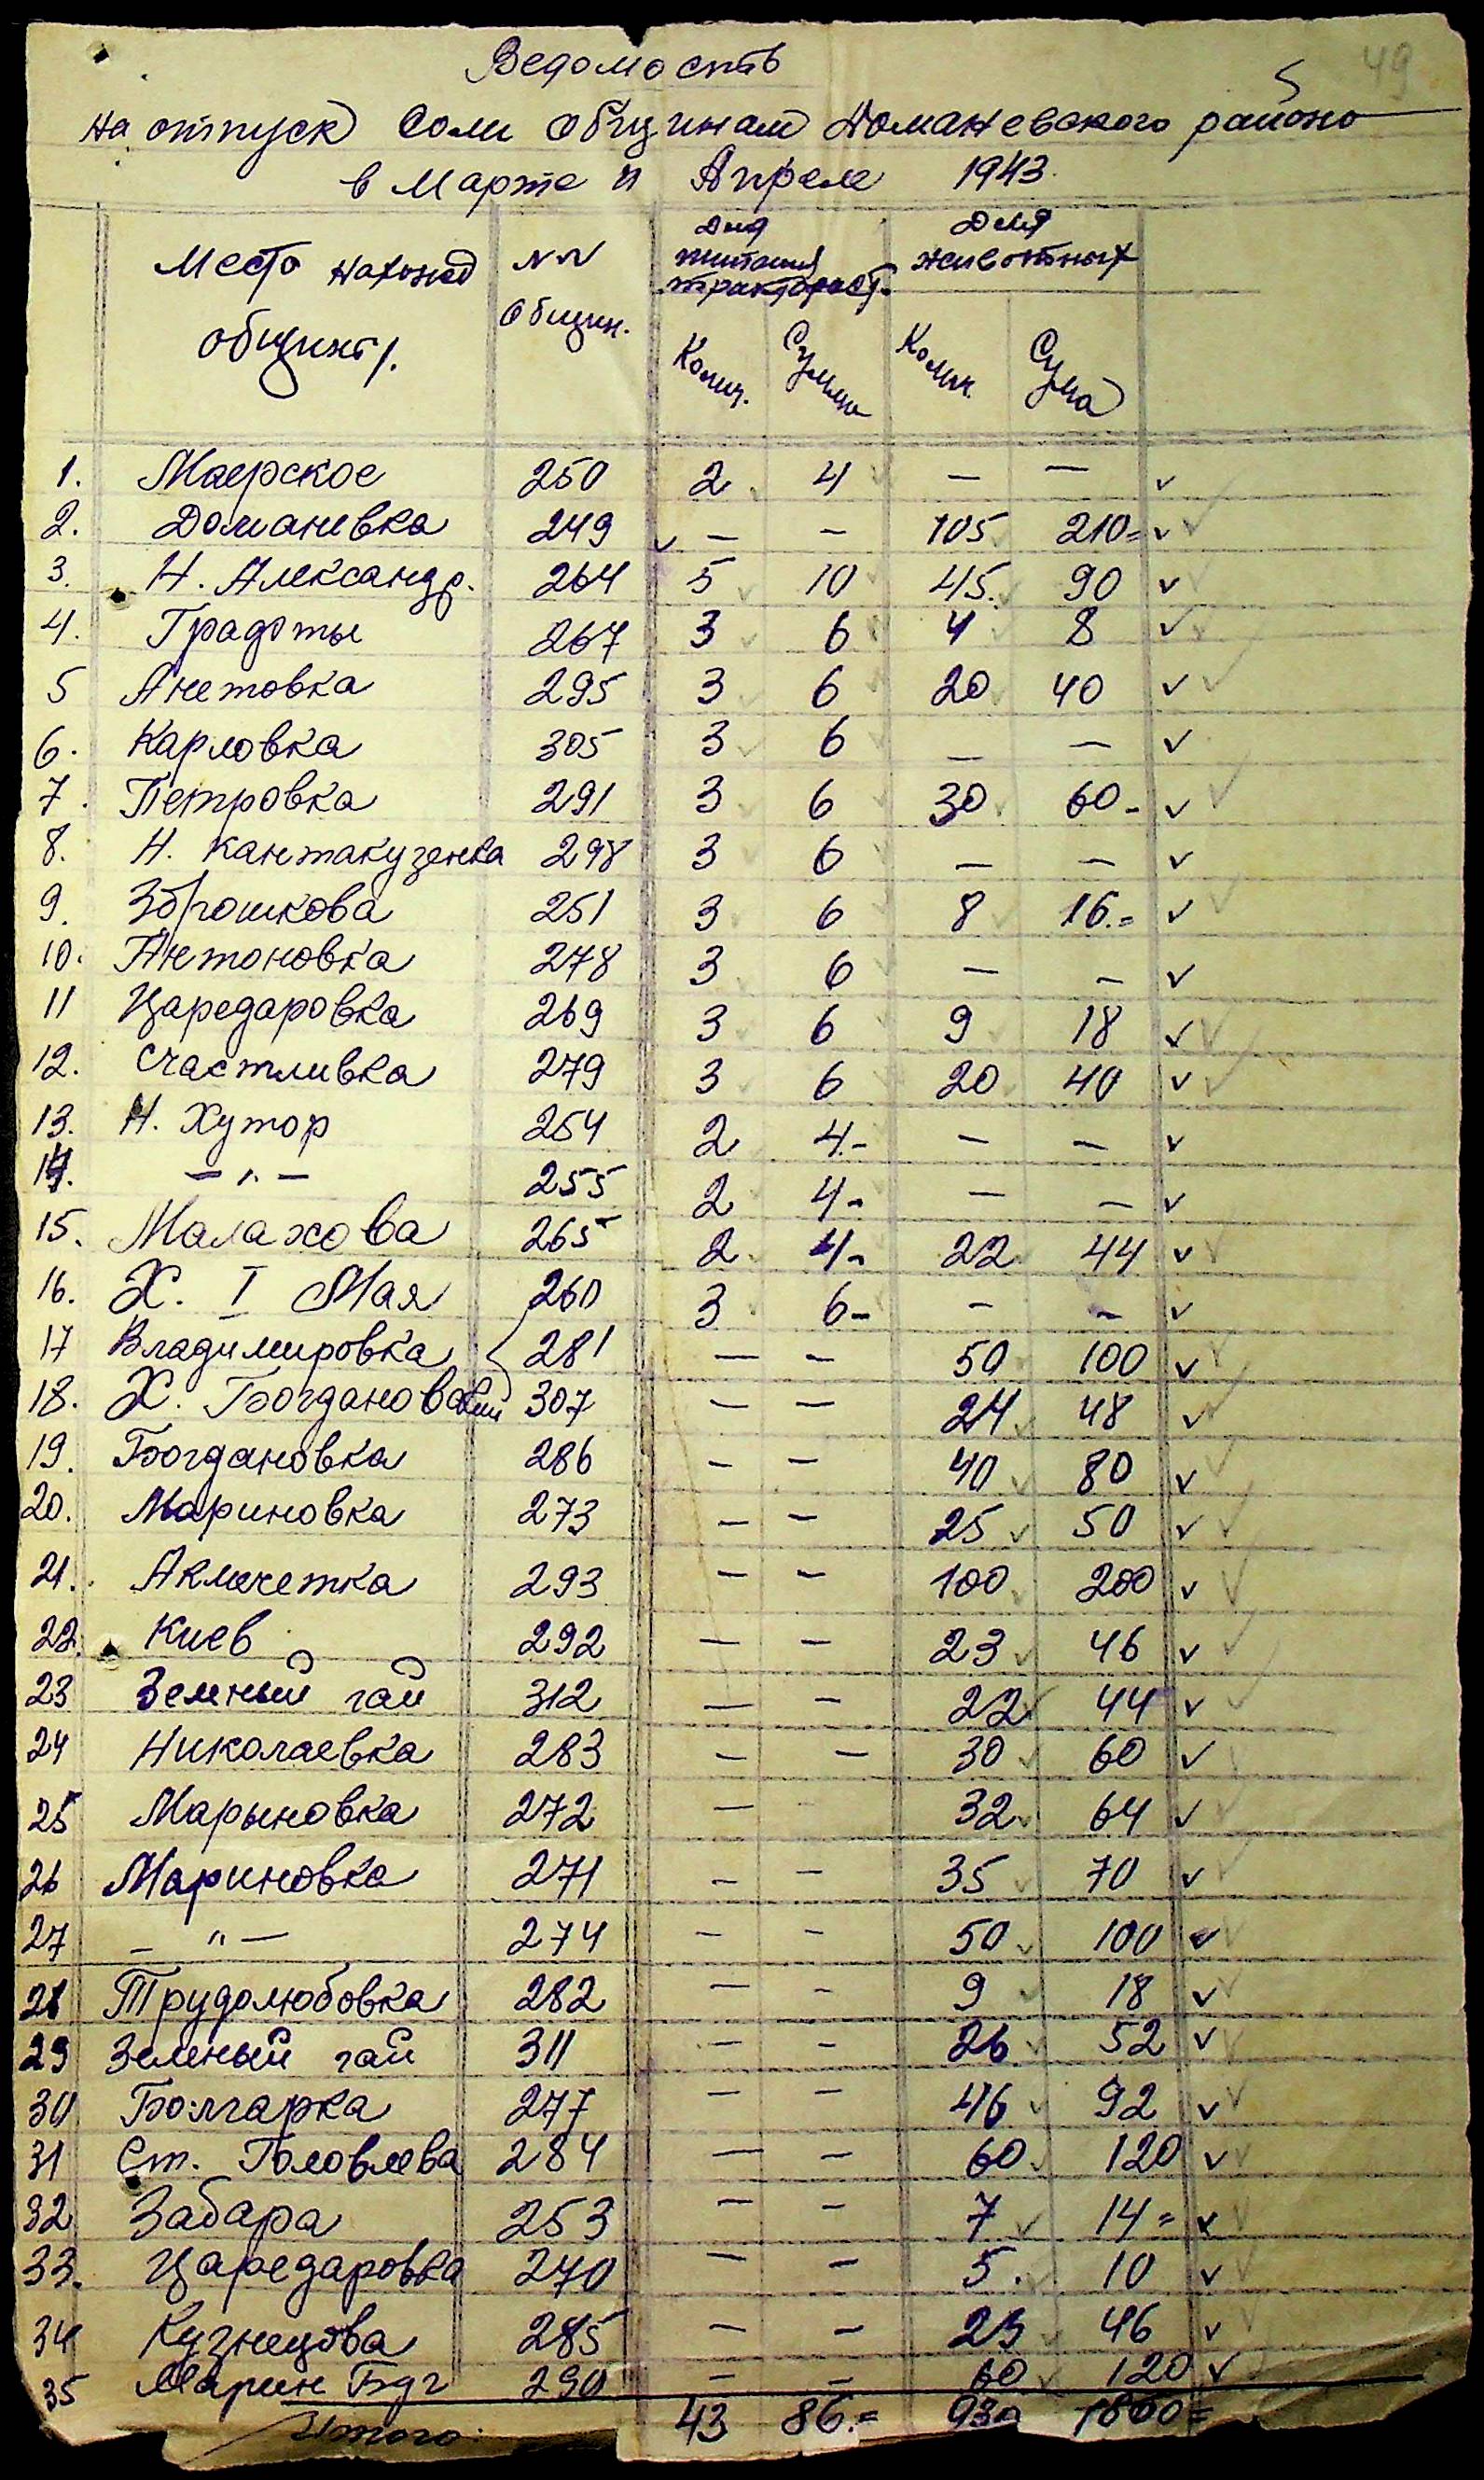 49
5
Ведомость
на отпуск соли общинам Доманевского района
в Марте и Апреле 1943.
Место нахожд общины. №№ общин. Для питания трактарост. Для животных
Колич. Сумма Колич. Сума
1. Маерское 250 2 4 — — v
2. Доманевка 249 v — — 105 210= v
3. Н. Александр. 264 5 10 45. 90 v
4. Градоты 267 3 6 4 8 v
5 Анетовка 295 3 6 20 40 v
6. Карловка 305 3 6 — — v
7. Петровка 291 3 6 30 60- v
8. Н. Кантакузенка 298 3 6 — — v
9. Зброшкова 251 3 6 8 16.= v
10. Антоновка 278 3 6 — — v
11 Царедаровка 269 3 6 9 18 v
12. Счастливка 279 3 6 20 40 v
13. Н. Хутор 254 2 4.- — — v
14. — " — 255 2 4- — — v
15. Малахова 265 2 4- 22 44 v
16. Х. I Мая 260 3 6- — — v
17 Владимировка 281 — — 50 100 v
18. Х. Богдановский 307 — — 24 48 v
19. Богдановка 286 — — 40 80 v
20. Мариновка 273 — — 25 50 v
21. Акмечетка 293 — — 100 200 v
22. Киев 292 — — 23 46 v
23 Зелный гай 312 — — 22 44 v
24 Николаевка 283 — — 30 60 v
25 Марыновка 272 — - 32 64 v
26 Мариновка 271 — — 35 70 v
27 — " — 274 — — 50 100 v
28 Трудолюбовка 282 — — 9 18 v
29 Зелный гай 311 — — 26 52 v
30 Болгарка 277 — — 46 92 v
31 Ст. Головлева 284 — — 60 120 v
32 Забара 253 — — 7 14= v
33. Царедаровка 270 — — 5. 10 v
34 Кузнецова 285 — — 23 46 v
35 Марин Бдг 290 — — 60 120 v
Итого: 43 86.= 930 1860=